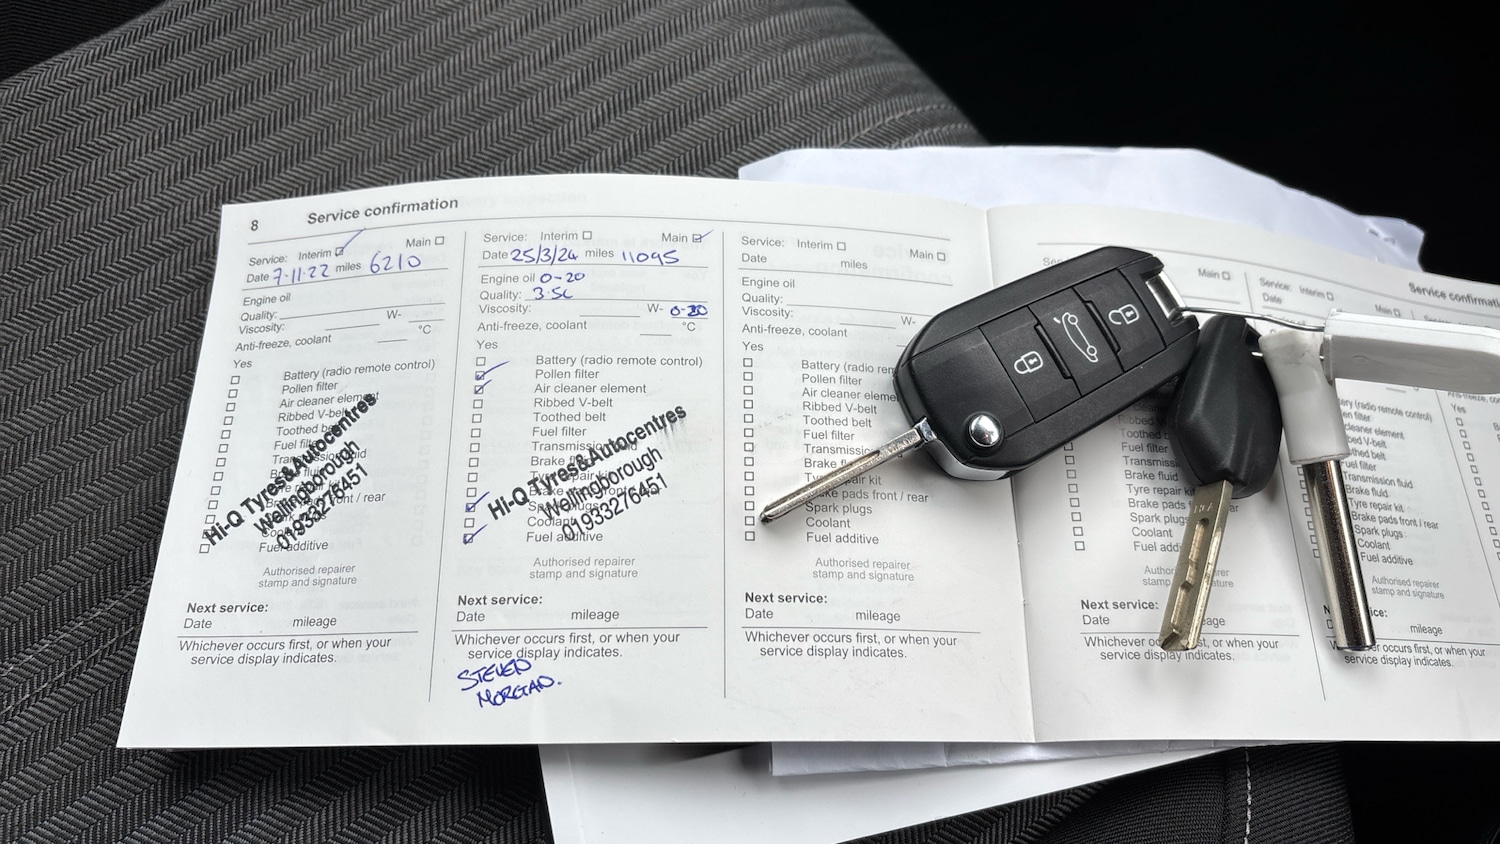 8 Service confirmation
Service: Interim Main
Date 7.11.22 miles 6210
Engine oil
Quality:
Viscosity: W-
Anti-freeze, coolant °C
Yes
Battery (radio remote control)
Pollen filter
Air cleaner element
Ribbed V-belt
Toothed
Fuel filter
Hi-Q Tyres&Autocentres
Wellingborough
01933276451
Fuel additive
Authorised repairer
stamp and signature
Next service:
Date mileage
Whichever occurs first, or when your
service display indicates.
Service: Interim Main
Date 25/3/24 miles 11095
Engine oil 0-20
Quality:
Viscosity: W- 0-20
Anti-freeze, coolant °C
Yes
Battery (radio remote control)
Pollen filter
Air cleaner element
Ribbed V-belt
Toothed belt
Fuel filter
Hi-Q Tyres&Autocentres
Wellingborough
01933276451
Coolant
Fuel additive
Authorised repairer
stamp and signature
Next service:
Date mileage
Whichever occurs first, or when your
service display indicates.
STEVEN
MORGAN.
Service: Interim Main
Date miles
Engine oil
Quality:
Viscosity: W-
Anti-freeze, coolant
Yes
Battery (radio
Pollen filter
Air cleaner
Ribbed V-belt
Toothed belt
Fuel filter
Brake
kit
pads front / rear
Spark plugs
Coolant
Fuel additive
Authorised repairer
stamp and signature
Next service:
Date mileage
Whichever occurs first, or when your
service display indicates.
Main
Brake fluid
Tyre repair
Brake pads
Spark plugs
Coolant
Fuel
Next service:
Date
service display indicates.
Service confirmation
Service: Interim Main
Date
(radio remote control)
filter
cleaner element
V-belt
belt
Fuel filter
Transmission fluid
Brake fluid
Tyre repair kit
Brake pads front / rear
Spark plugs
Coolant
Fuel additive
Authorised repairer
stamp and signature
mileage
occurs first, or when your
service display indicates.
Yes